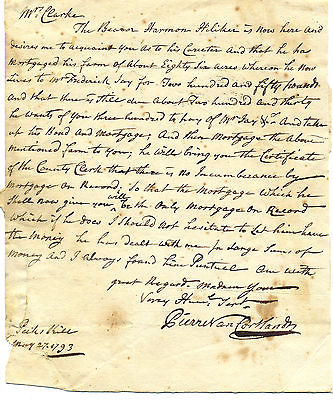 Mrs. Clarke
The Bearer Harmon Hiliker is now here and
desires me to acquaint you as to his Carecter and that he has
Mortgaged his farm of about Eighty Six acres whereon he Now
Lives to Mr. Frederick Jay for Two hundred and fifty pounds
And that there is still due about Two hundred and thirty
he wants of you three hundred to pay of Mr. Jay &c. And take
up his Bond and Mortgage, And then Mortgage the above
Mentioned farm to you; he will bring you the Certificate
of the County Clerk that there is No Incumbrance by
Mortgage on Record; So that the Mortgage which he
Shall now give you will be the Only Mortgage on Record
Which if he does I Should not hesitate to let him have
the Money he has dealt with me for Large Sums of
Money and I always found him Puntual Am with
great Regard Madam Your
Very Hum. Servt.
Pierre Van Cortlandt
Peeks Kill
May 27. 1793